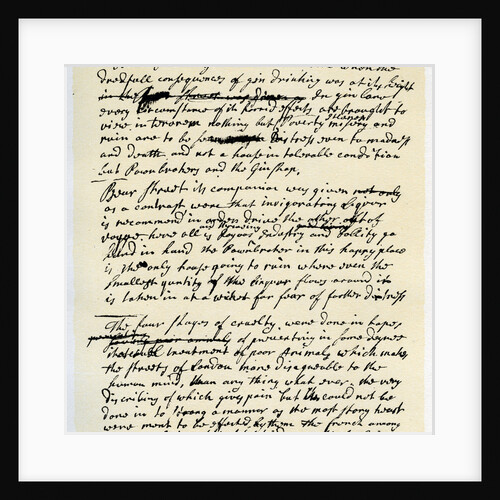 dreadfull consequences of gin drinking was at its height
in Gin Lane
every Circumstance of its horrid effects are brought to
view in terorem nothing but Idleness Poverty misery and
ruin are to be seen Distress even to madness
and death, and not a house in tolerable condition
but Pawnbrokers and the Ginshop,
Beer Street its companion was given not only
as a contrast were that invigorating Liquor
is recommend in order drive the other out of
vogue here all is Joyous and thriveing Industry and Jollity go
hand in hand the Pawnbroker in this happy place
is the only house going to ruin where even the
smallest quntity of the liquour flows around it
is taken in at a wiket for fear of farther distress
The four stages of cruelty, were done in hopes
of preventing in some degree
that cruel treatment of poor Animals which makes
the streets of London more disagreable to the
human mind, than any thing what ever, the very
discribing of which gives pain but could not be
done in to strong a manner as the most stony heart
were ment to be effected by them the french among